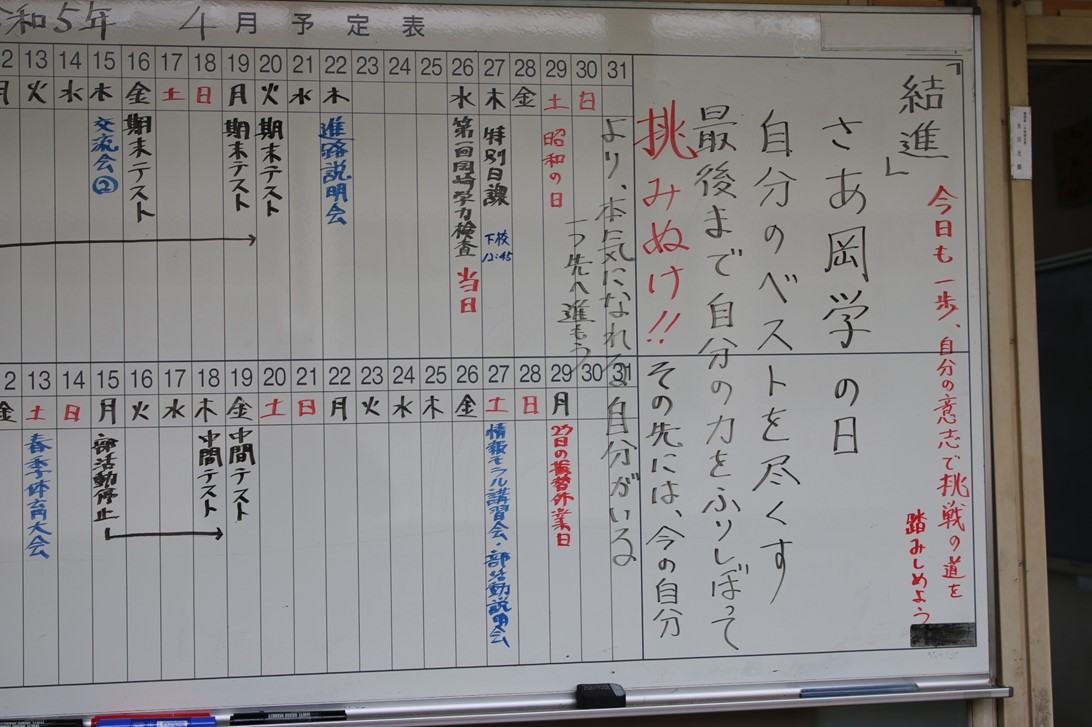 令和5年 4月予定表
「結進」
今日も一歩、自分の意志で挑戦の道を
踏みしめよう
さあ岡学の日
自分のベストを尽くす
最後まで自分の力をふりしぼって
挑みぬけ!! その先には、今の自分
より、本気になれる自分がいる
一つ先へ進もう
2 13 14 15 16 17 18 19 20 21 22 23 24 25 26 27 28 29 30 31
月 火 水 木 金 土 日 月 火 水 木 水 木 金 土 日
交流会②
期末テスト
期末テスト
期末テスト
進路説明会
第一回岡崎学力検査 当日
特別日課 下校12:45
昭和の日
2 13 14 15 16 17 18 19 20 21 22 23 24 25 26 27 28 29 30 31
金 土 日 月 火 水 木 金 土 日 月 火 水 木 金 土 日 月
春季体育大会
部活動停止
中間テスト
中間テスト
情報モラル講習会・部活動説明会
27日の振替休業日